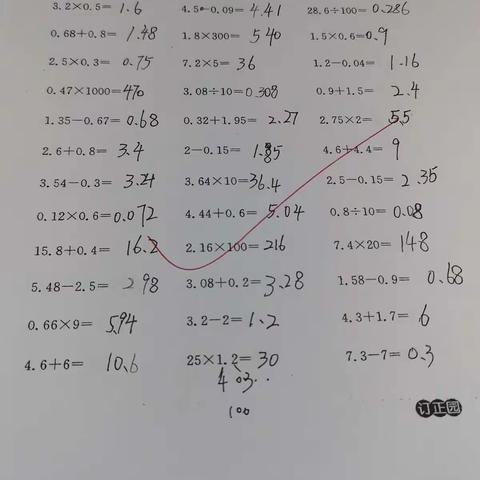 3.2×0.5= 1.6 4.5-0.09= 4.41 28.6÷100= 0.286
0.68+0.8= 1.48 1.8×300= 540 1.5×0.6= 0.9
2.5×0.3= 0.75 7.2×5= 36 1.2-0.04= 1.16
0.47×1000= 470 3.08÷10= 0.308 0.9+1.5= 2.4
1.35-0.67= 0.68 0.32+1.95= 2.27 2.75×2= 5.5
2.6+0.8= 3.4 2-0.15= 1.85 4.6+4.4= 9
3.54-0.3= 3.24 3.64×10= 36.4 2.5-0.15= 2.35
0.12×0.6= 0.072 4.44+0.6= 5.04 0.8÷10= 0.08
15.8+0.4= 16.2 2.16×100= 216 7.4×20= 148
5.48-2.5= 2.98 3.08+0.2= 3.28 1.58-0.9= 0.68
0.66×9= 5.94 3.2-2= 1.2 4.3+1.7= 6
4.6+6= 10.6 25×1.2= 30 7.3-7= 0.3
4 0.3
100
订正园